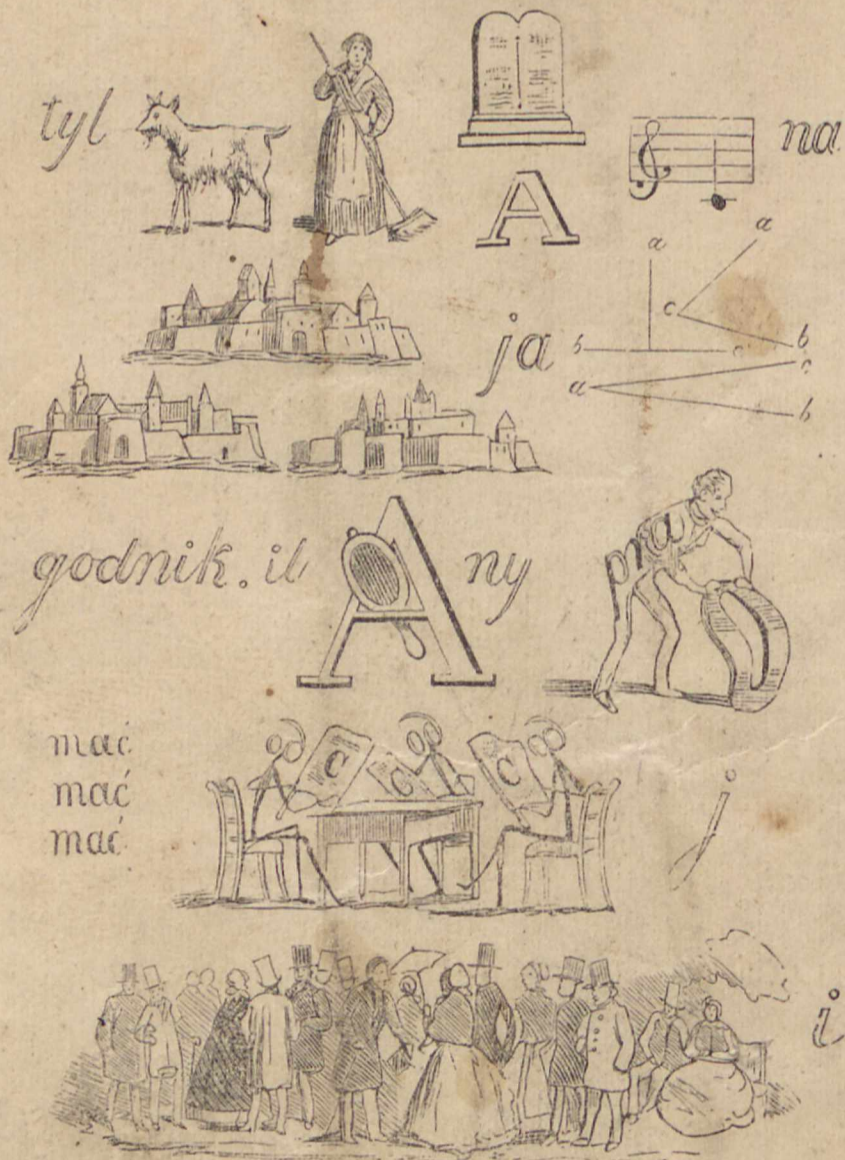 tyl
na
A
a
a
c
b
ja
b
c
c
a
b
godnik. il A ny
pra
mać
mać
mać
C
C
C
i
i